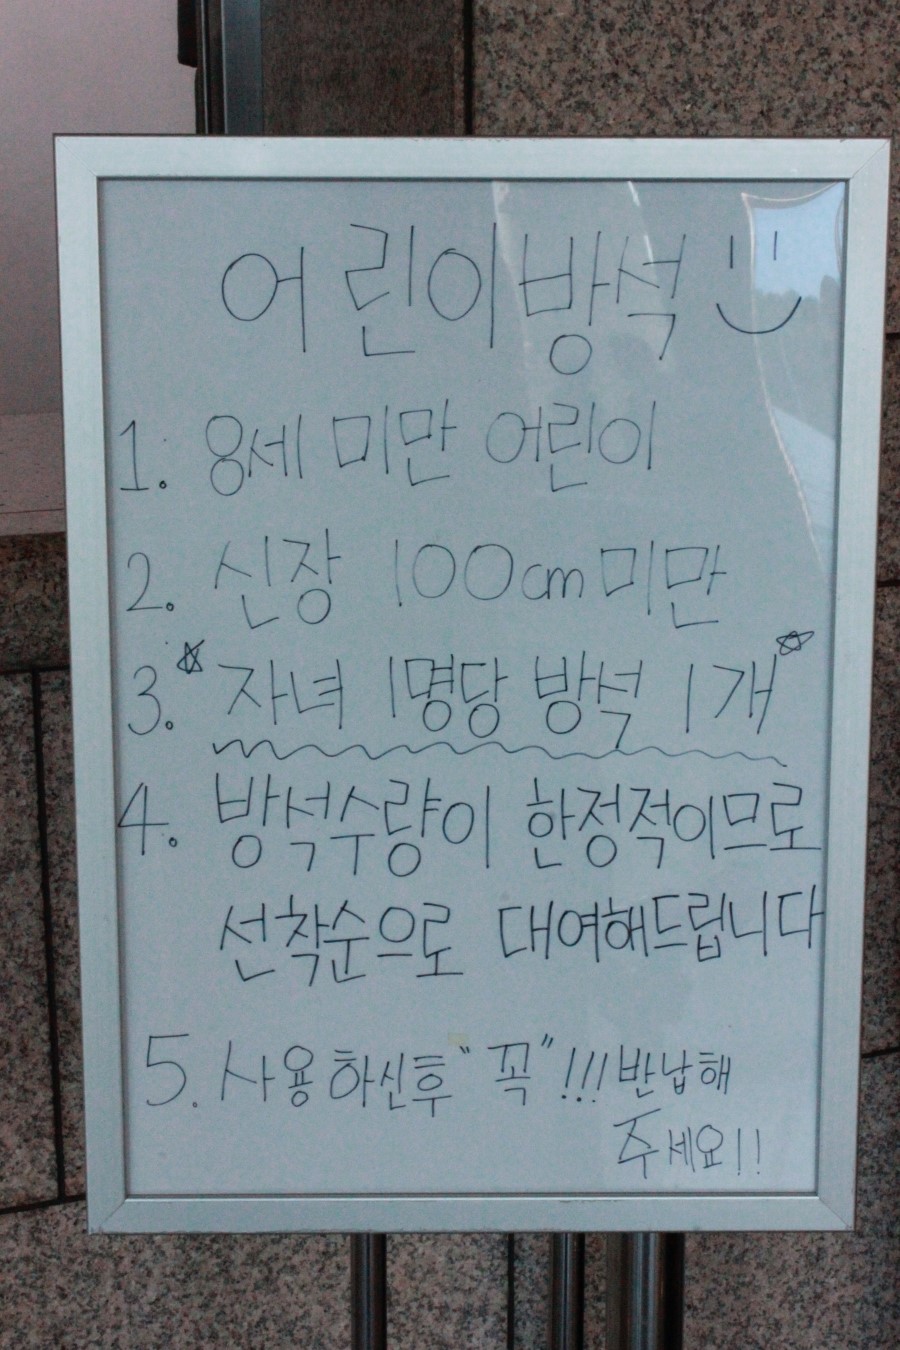 어린이방석
1. 8세 미만 어린이
2. 신장 100cm 미만
3. 자녀 1명당 방석 1개
4. 방석수량이 한정적이므로
선착순으로 대여해드립니다
5. 사용하신후 "꼭"!!! 반납해
주세요!!